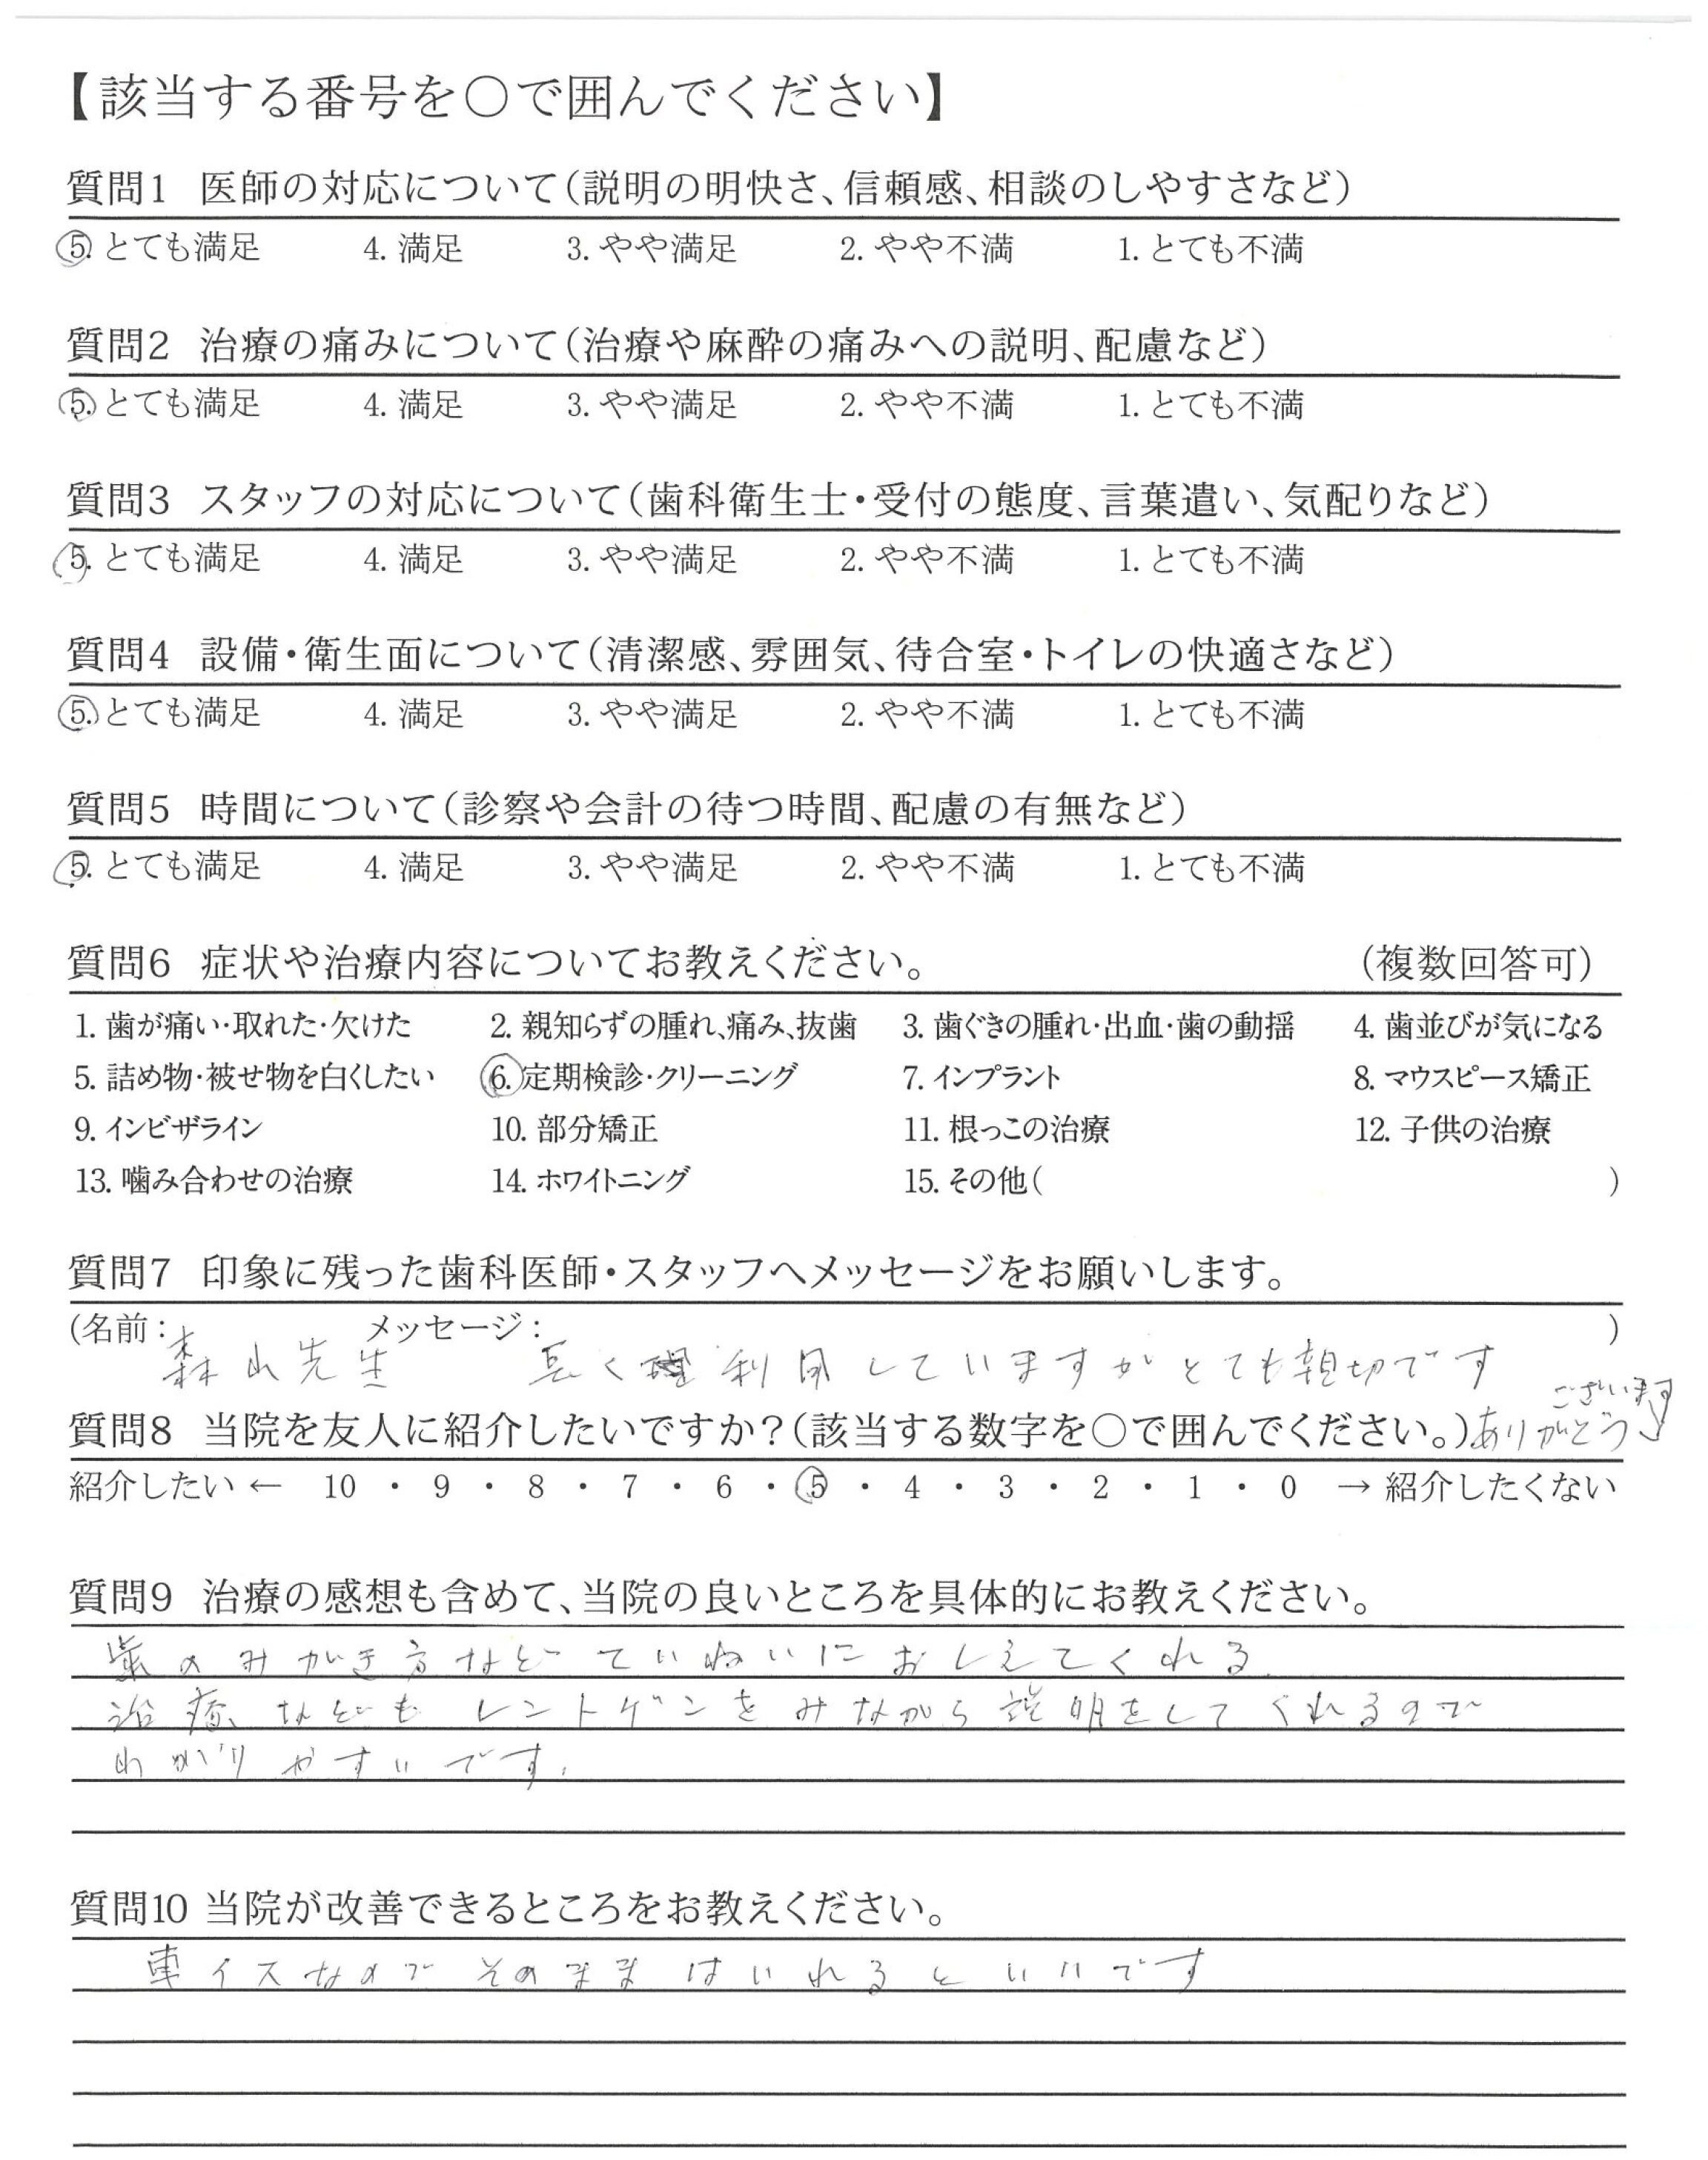 【該当する番号を○で囲んでください】
質問1 医師の対応について(説明の明快さ、信頼感、相談のしやすさなど)
5. とても満足 4. 満足 3. やや満足 2. やや不満 1. とても不満
質問2 治療の痛みについて(治療や麻酔の痛みへの説明、配慮など)
5. とても満足 4. 満足 3. やや満足 2. やや不満 1. とても不満
質問3 スタッフの対応について(歯科衛生士・受付の態度、言葉遣い、気配りなど)
5. とても満足 4. 満足 3. やや満足 2. やや不満 1. とても不満
質問4 設備・衛生面について(清潔感、雰囲気、待合室・トイレの快適さなど)
5. とても満足 4. 満足 3. やや満足 2. やや不満 1. とても不満
質問5 時間について(診察や会計の待つ時間、配慮の有無など)
5. とても満足 4. 満足 3. やや満足 2. やや不満 1. とても不満
質問6 症状や治療内容についてお教えください。 (複数回答可)
1. 歯が痛い・取れた・欠けた 2. 親知らずの腫れ、痛み、抜歯 3. 歯ぐきの腫れ・出血・歯の動揺 4. 歯並びが気になる
5. 詰め物・被せ物を白くしたい 6. 定期検診・クリーニング 7. インプラント 8. マウスピース矯正
9. インビザライン 10. 部分矯正 11. 根っこの治療 12. 子供の治療
13. 噛み合わせの治療 14. ホワイトニング 15. その他( )
質問7 印象に残った歯科医師・スタッフへメッセージをお願いします。
(名前: メッセージ: )
森山先生 長く利用していますがとても親切です
ございます
質問8 当院を友人に紹介したいですか?(該当する数字を○で囲んでください。) ありがとう
紹介したい ← 10 ・ 9 ・ 8 ・ 7 ・ 6 ・ 5 ・ 4 ・ 3 ・ 2 ・ 1 ・ 0 → 紹介したくない
質問9 治療の感想も含めて、当院の良いところを具体的にお教えください。
歯のみがき方などていねいにおしえてくれる.
治療などもレントゲンをみながら説明をしてくれるので
わかりやすいです.
質問10 当院が改善できるところをお教えください。
車イスなのでそのままはいれるといいです